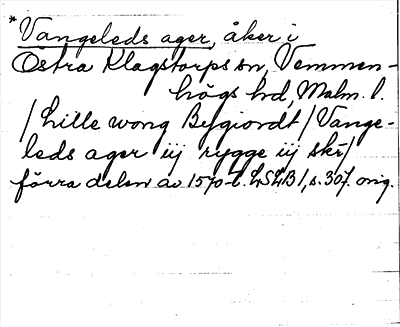 *Vangeleds ager, åker i
Östra Klagstorps sn, Vemmen-
högs hd, Malm. l.
/ Lille wong Bygiordt / Vange-
leds ager iij rygge iij skr /
förra delen av 1570-t. LSLB 1, s. 307. orig.